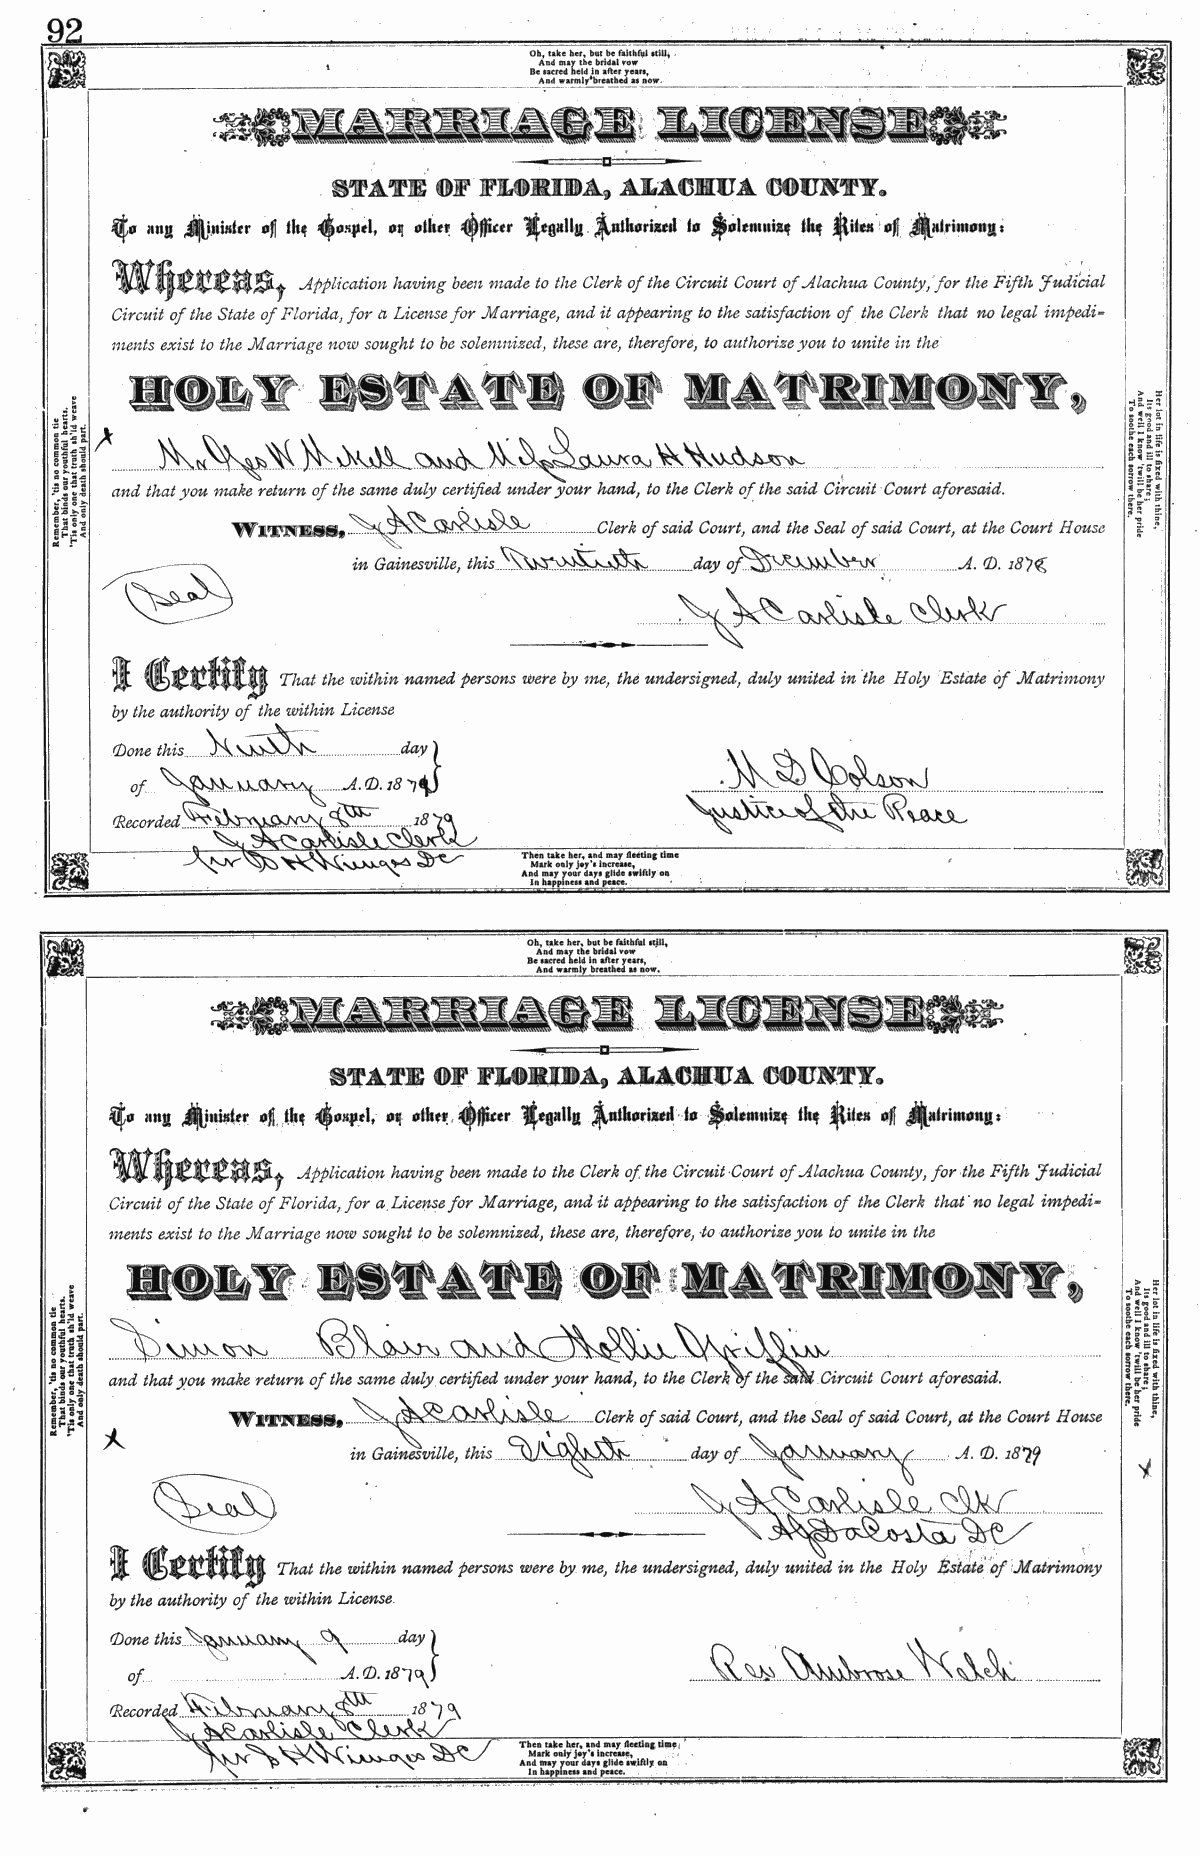 92
Oh, take her, but be faithful still,
And may the bridal vow
Be sacred held in after years,
And warmly breathed as now.
MARRIAGE LICENSE
STATE OF FLORIDA, ALACHUA COUNTY.
To any Minister of the Gospel, or other Officer Legally Authorized to Solemnize the Rites of Matrimony:
Whereas, Application having been made to the Clerk of the Circuit Court of Alachua County, for the Fifth Judicial
Circuit of the State of Florida, for a License for Marriage, and it appearing to the satisfaction of the Clerk that no legal impedi-
ments exist to the Marriage now sought to be solemnized, these are, therefore, to authorize you to unite in the
HOLY ESTATE OF MATRIMONY,
Mr Geo W Mikell and Miss Laura H Hudson
and that you make return of the same duly certified under your hand, to the Clerk of the said Circuit Court aforesaid.
WITNESS, J A Carlisle Clerk of said Court, and the Seal of said Court, at the Court House
in Gainesville, this Twentieth day of December A. D. 1878
(Seal)
J A Carlisle Clerk
I Certify That the within named persons were by me, the undersigned, duly united in the Holy Estate of Matrimony
by the authority of the within License
Done this Ninth day
of January A. D. 1879
M D Colson
Justice of the Peace
Recorded February 8th 1879
J A Carlisle Clerk
per S H Wienges DC
Remember, 'tis no common tie
That binds our youthful hearts,
'Tis only one that truth sh'ld weave
And only death should part.
Her lot in life is fixed with thine,
Its good and ill to share;
And well I know 'twill be her pride
To soothe each sorrow there.
Then take her, and may fleeting time
Mark only joy's increase,
And may your days glide swiftly on
In happiness and peace.
Oh, take her, but be faithful still,
And may the bridal vow
Be sacred held in after years,
And warmly breathed as now.
MARRIAGE LICENSE
STATE OF FLORIDA, ALACHUA COUNTY.
To any Minister of the Gospel, or other Officer Legally Authorized to Solemnize the Rites of Matrimony:
Whereas, Application having been made to the Clerk of the Circuit Court of Alachua County, for the Fifth Judicial
Circuit of the State of Florida, for a License for Marriage, and it appearing to the satisfaction of the Clerk that no legal impedi-
ments exist to the Marriage now sought to be solemnized, these are, therefore, to authorize you to unite in the
HOLY ESTATE OF MATRIMONY,
Simon Blair and Mollie Griffin
and that you make return of the same duly certified under your hand, to the Clerk of the said Circuit Court aforesaid.
WITNESS, J A Carlisle Clerk of said Court, and the Seal of said Court, at the Court House
in Gainesville, this Eighth day of January A. D. 1879
(Seal)
J A Carlisle Clk
A J DaCosta DC
I Certify That the within named persons were by me, the undersigned, duly united in the Holy Estate of Matrimony
by the authority of the within License
Done this January 9 day
of A. D. 1879
Rev Ambrose Welch
Recorded February 8th 1879
J A Carlisle Clerk
per S H Wienges DC
Remember, 'tis no common tie
That binds our youthful hearts.
'Tis only one that truth sh'ld weave
And only death should part.
Her lot in life is fixed with thine,
Its good and ill to share;
And well I know 'twill be her pride
To soothe each sorrow there.
Then take her, and may fleeting time
Mark only joy's increase,
And may your days glide swiftly on
In happiness and peace.